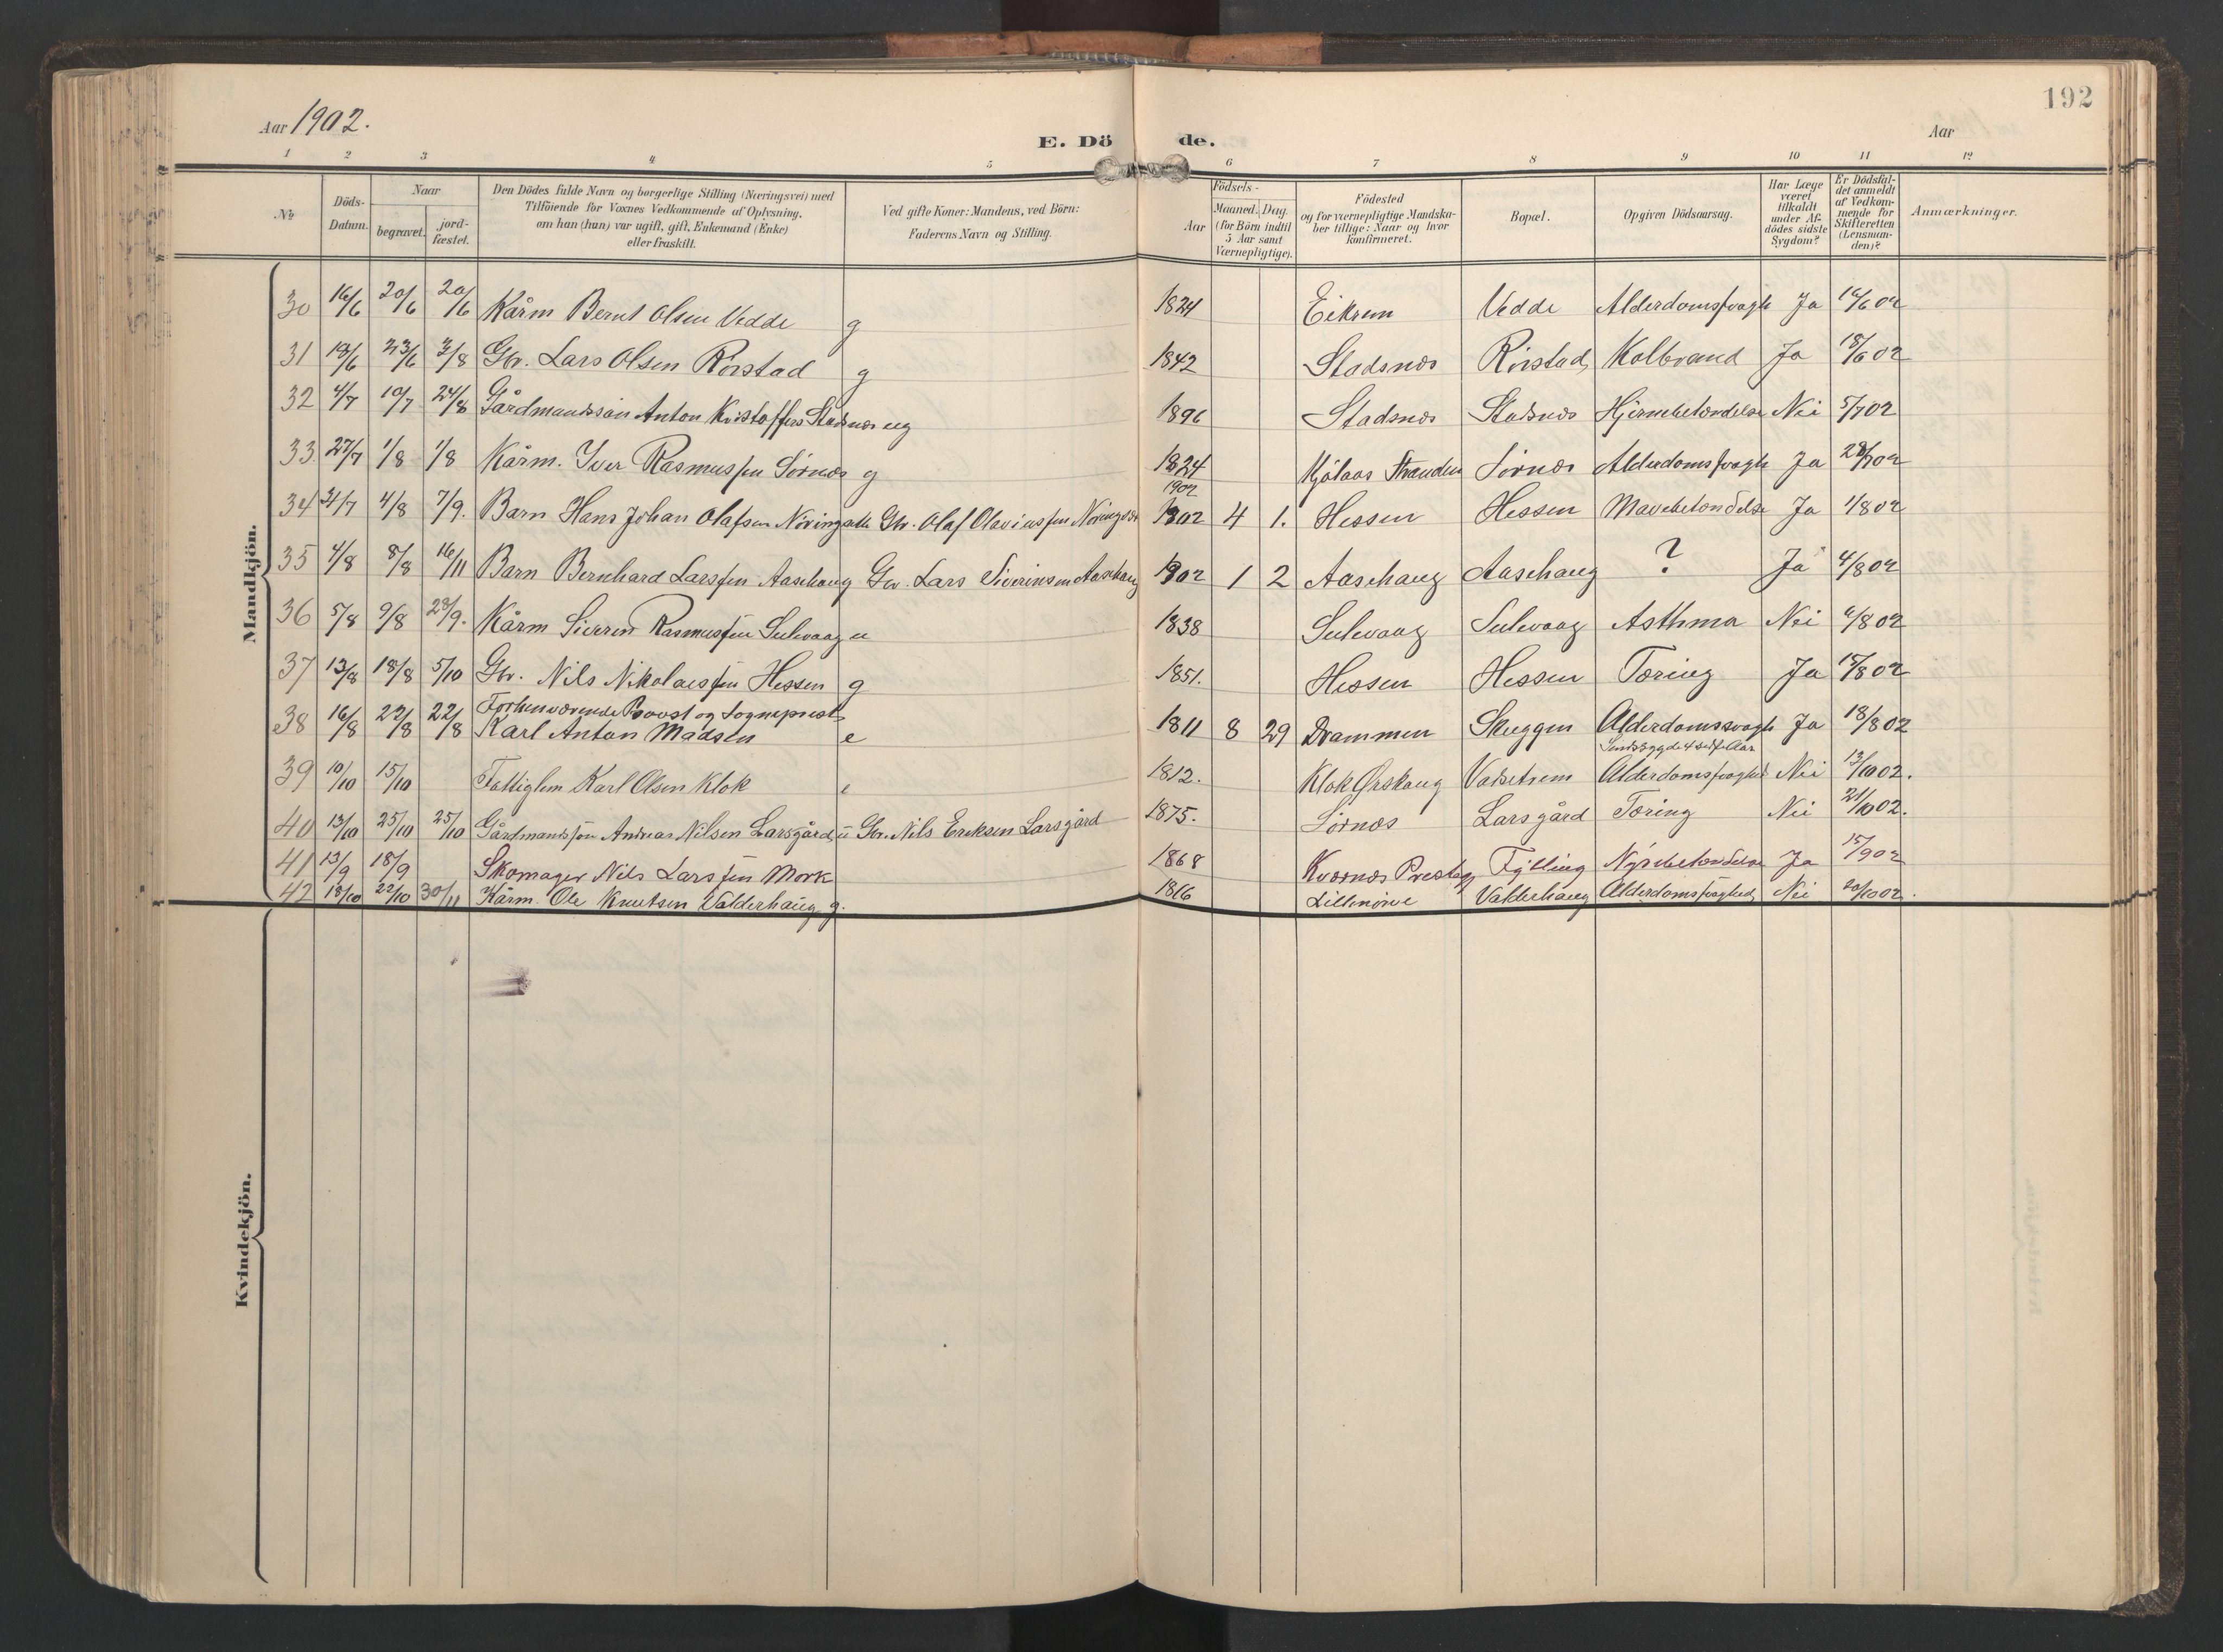 192
Aar 1902.
E. Dö de.
Aar
1 2 3 4 5 6 7 8 9 10 11 12
№
Döds-Datum.
Naar
begravet.
jord-fæstet.
Den Dödes fulde Navn og borgerlige Stilling (Næringsvei) med
Tilföiende for Voxnes Vedkommende af Oplysning,
om han (hun) var ugift, gift, Enkemand (Enke)
eller fraskilt.
Ved gifte Koner: Mandens, ved Börn:
Faderens Navn og Stilling.
Födsels-
Aar
Maaned. Dag.
(for Börn indtil
5 Aar samt
Værnepligtige).
Födested
og for værnepligtige Mandska-
ber tillige: Naar og hvor
konfirmeret.
Bopæl.
Opgiven Dödsaarsag.
Har Læge
været
tilkaldt
under Af-
dödes sidste
Sygdom?
Er Dödsfal-
det anmeldt
af Vedkom-
mende for
Skifteretten
(Lensman-
den)?
Anmærkninger.
Mandkjön.
30 16/6 20/6 20/6 Kårm Bernt Olsen Vedde g 1824 Eikrem Vedde Alderdomssvagh Ja 16/6 02
31 18/6 23/6 3/8 Gbr. Lars Olsen Rörstad g 1842 Stadsnes Rörstad Kolbrand Ja 18/6 02
32 4/7 10/7 24/8 Gårdmandssön Anton Kristoffers Stadsnes ug 1896 Stadsnes Stadsnes Hjernebetændelse Nei 5/7 02
33 27/7 1/8 1/8 Kårm. Iver Rasmussen Sörnes g 1824 Kjölaas Stranden Sörnes Alderdomssvagh Ja 28/7 02
34 31/7 4/8 7/9. Barn Hans Johan Olafsen Nöringseth Gbr. Olaf Olaviussen Nöringset 1902 1902 4 1. Hessen Hessen Mavebetændelse Ja 1/8 02
35 4/8 8/8 16/11 Barn Bernhard Larssen Aasehaug Gbr. Lars Siverinsen Aasehaug 1902 1 2 Aasehaug Aasehaug ? Ja 4/8 02
36 5/8 9/8 28/9. Kårm Siverin Rasmussen Sulevaag u 1838 Sulevaag Sulevaag Asthma Nei 6/8 02
37 13/8 18/8 5/10 Gbr. Nils Nikolaissen Hessen g 1851. Hessen Hessen Tæring Ja 15/8 02
38 16/8 22/8 22/8 Forhenværende Provst og Sogneprest
Karl Anton Madsen e 1811 8 29 Drammen Skuggen Alderdomssvagh Ja 18/8 02
39 10/10 15/10 Fattiglem Karl Olsen Klok e 1812. Klok Ørskoug Vatsetrem Alderdomssvaghed Nei 13/10 02.
40 13/10 25/10 25/10 Gårdmandssön Andreas Nilsen Larsgård u Gbr. Nils Eriksen Larsgård 1875. Sörnes Larsgård Tæring Nei 21/10 02.
41 13/9 18/9 Skomager Nils Larssen Mork 1868 Kværnes Prestegj Fylling Nyrebetændelse Ja 15/9 02
42 18/10 22/10 30/11 Kårm. Ole Knutsen Valderhaug g. 1816 Lillenörve Valderhaug Alderdomssvaghed Nei 20/10 02.
Kvindekjön.